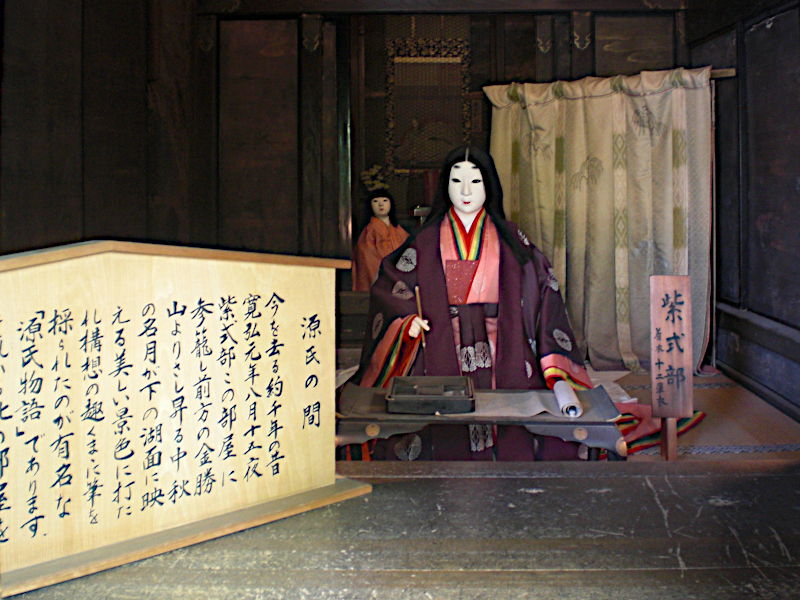 源氏の間
今を去る約千年の昔
寛弘元年八月十五夜
紫式部この部屋に
参籠し前方の金勝
山よりさし昇る中秋
の名月が下の湖面に映
える美しい景色に打た
れ構想の趣くまゝに筆を
採られたのが有名な
「源氏物語」であります.
此の部屋を
紫式部
着衣十二単衣